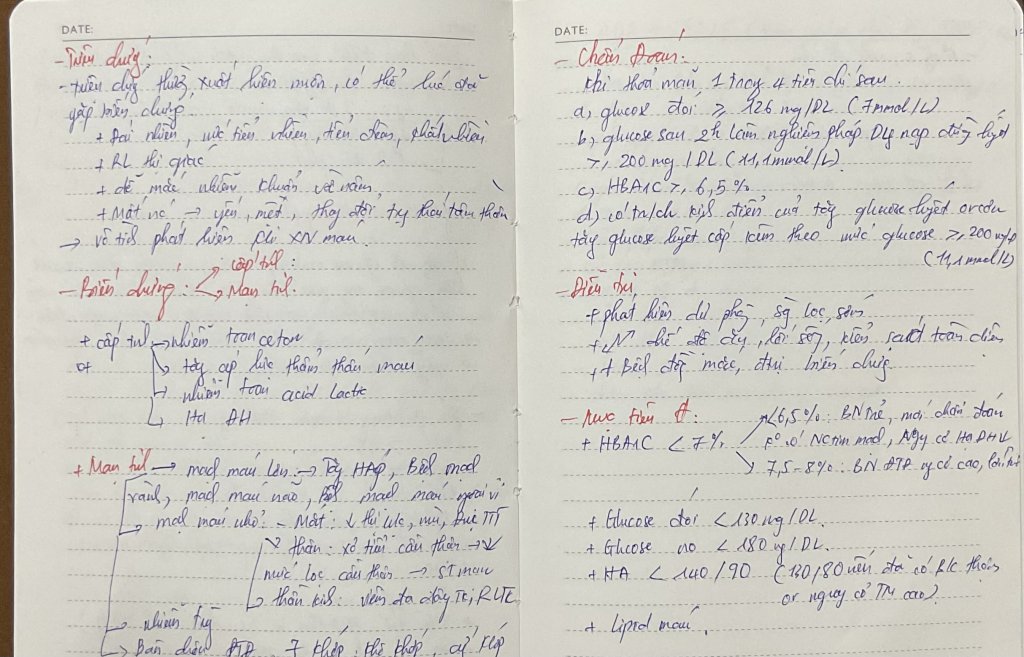 DATE:
- Triệu chứng:
- triệu chứng thường xuất hiện muộn, có thể lúc đã
gặp biến chứng.
+ Đái nhiều, uống nhiều, nhiều
+ RL thị giác
+ dễ mắc nhiễm khuẩn và nấm
+ Mất nước → yếu, mệt, thay đổi trạng thái tâm thần
→ vô tình phát hiện khi XN máu.
- Biến chứng: cấp tính:
Mạn tính.
+ cấp tính nhiễm toan ceton
tăng áp lực thẩm thấu máu
nhiễm toan acid lactic
Hạ ĐH
+ Mạn tính → mạch máu lớn → Tăng HAp, Bệnh mạch
vành, mạch máu não, Bệnh mạch máu ngoại vi
mạch máu nhỏ: - Mắt: ↓ thị lực, mù, Đục TTT
thận: xơ tiểu cầu thận → ↓
mức lọc cầu thận → ST mạn
thần kinh: viêm đa dây TK, RLTK
nhiễm trùng
Bàn chân ĐTĐ, khớp,
DATE:
- Chẩn Đoán:
Khi thoả mãn 1 trong 4 tiêu chí sau.
a) glucose đói ≥ 126 mg/DL (7mmol/L)
b) glucose sau 2h làm nghiệm pháp Dung nạp đường huyết
≥ 200 mg/DL (11,1mmol/L).
c) HBA1C ≥ 6,5%
d) có tr/ch kinh điển của tăng glucose huyết or cơn
tăng glucose huyết cấp kèm theo mức glucose ≥ 200 mg/
(11,1mmol/L)
- Điều trị
+ phát hiện dự phòng, sàng lọc, sớm
+ chế độ ăn, lối sống, kiểm soát toàn diện
+ Bệnh đồng mắc, đtrị biến chứng
- Mục tiêu đ:
+ HBA1C < 7% <6,5%: BN trẻ, mới chẩn đoán
K° có NC tim mạch, Nguy cơ Hạ ĐH ↓
7,5-8%: BN ĐTĐ ng cơ cao,
+ Glucose đói <130 mg/DL.
+ Glucose no < 180 mg/DL.
+ HA < 140/90 (130/80 nếu đã có B/c thận
or nguy cơ TM cao).
+ Lipid máu.